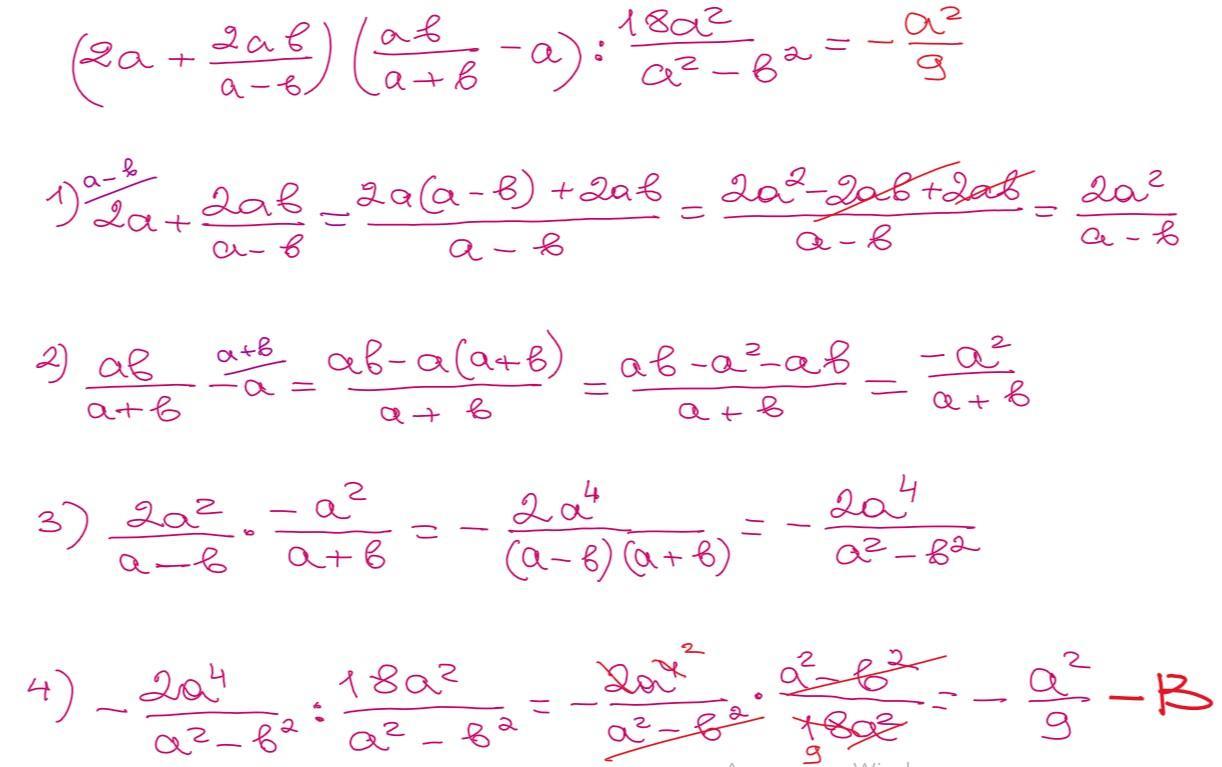 (2a + 2ab/(a-b)) (ab/(a+b) - a) : 18a²/(a² - b²) = - a²/9
1) 2a^{/a-b} + 2ab/(a-b) = (2a(a-b) + 2ab)/(a-b) = (2a² - 2ab + 2ab)/(a-b) = 2a²/(a-b)
2) ab/(a+b) - a^{/a+b} = (ab - a(a+b))/(a+b) = (ab - a² - ab)/(a+b) = -a²/(a+b)
3) 2a²/(a-b) · -a²/(a+b) = - 2a⁴/((a-b)(a+b)) = - 2a⁴/(a² - b²)
4) - 2a⁴/(a² - b²) : 18a²/(a² - b²) = - 2a⁴ ²/(a² - b²) · (a² - b²)/18a² 9 = - a²/9 - B